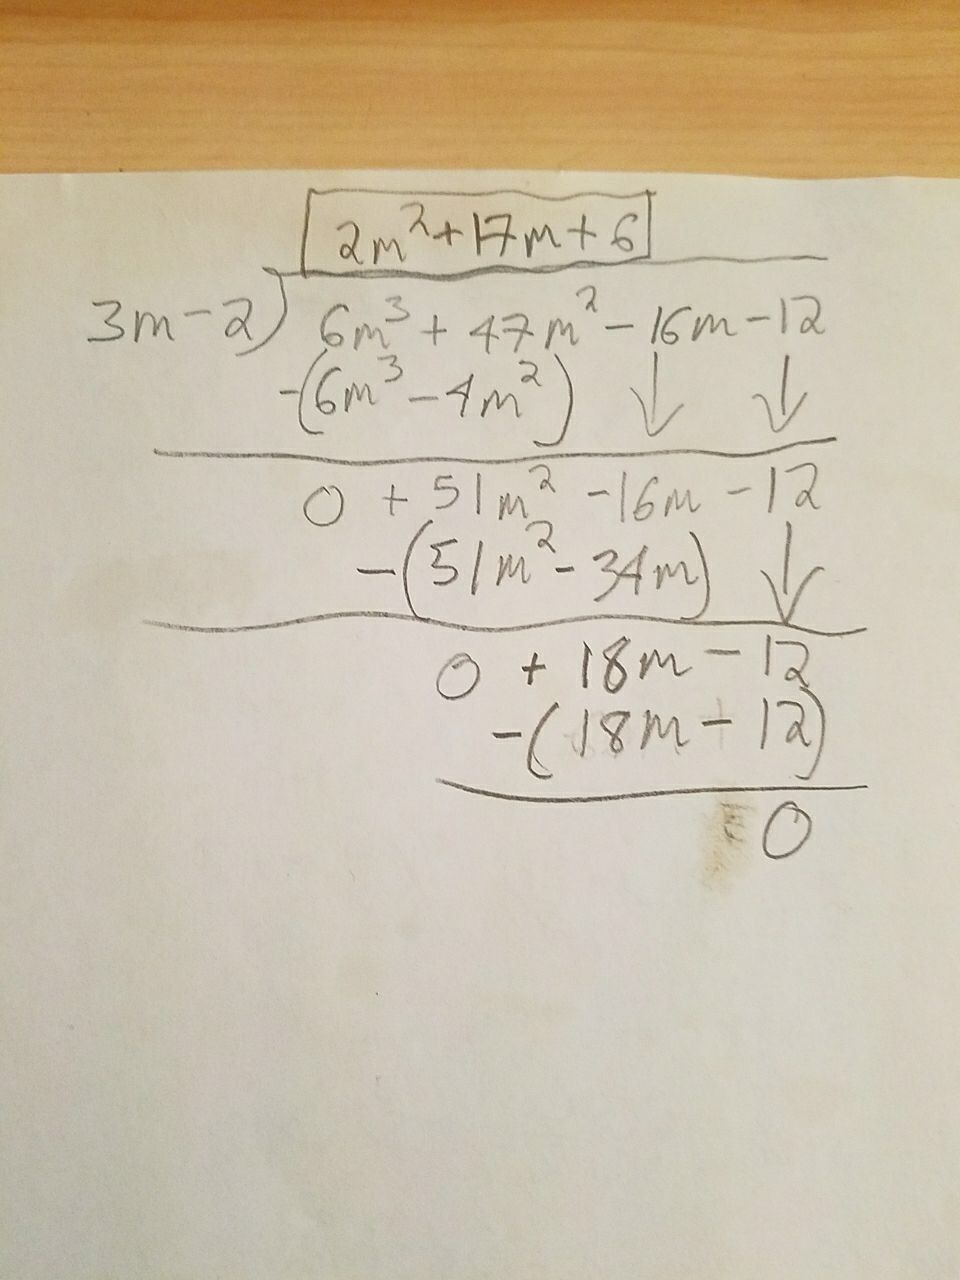 2m²+17m+6
3m-2) 6m³ + 47m² - 16m - 12
-(6m³ - 4m²) ↓ ↓
0 + 51m² - 16m - 12
-(51m² - 34m) ↓
0 + 18m - 12
-(18m - 12)
0